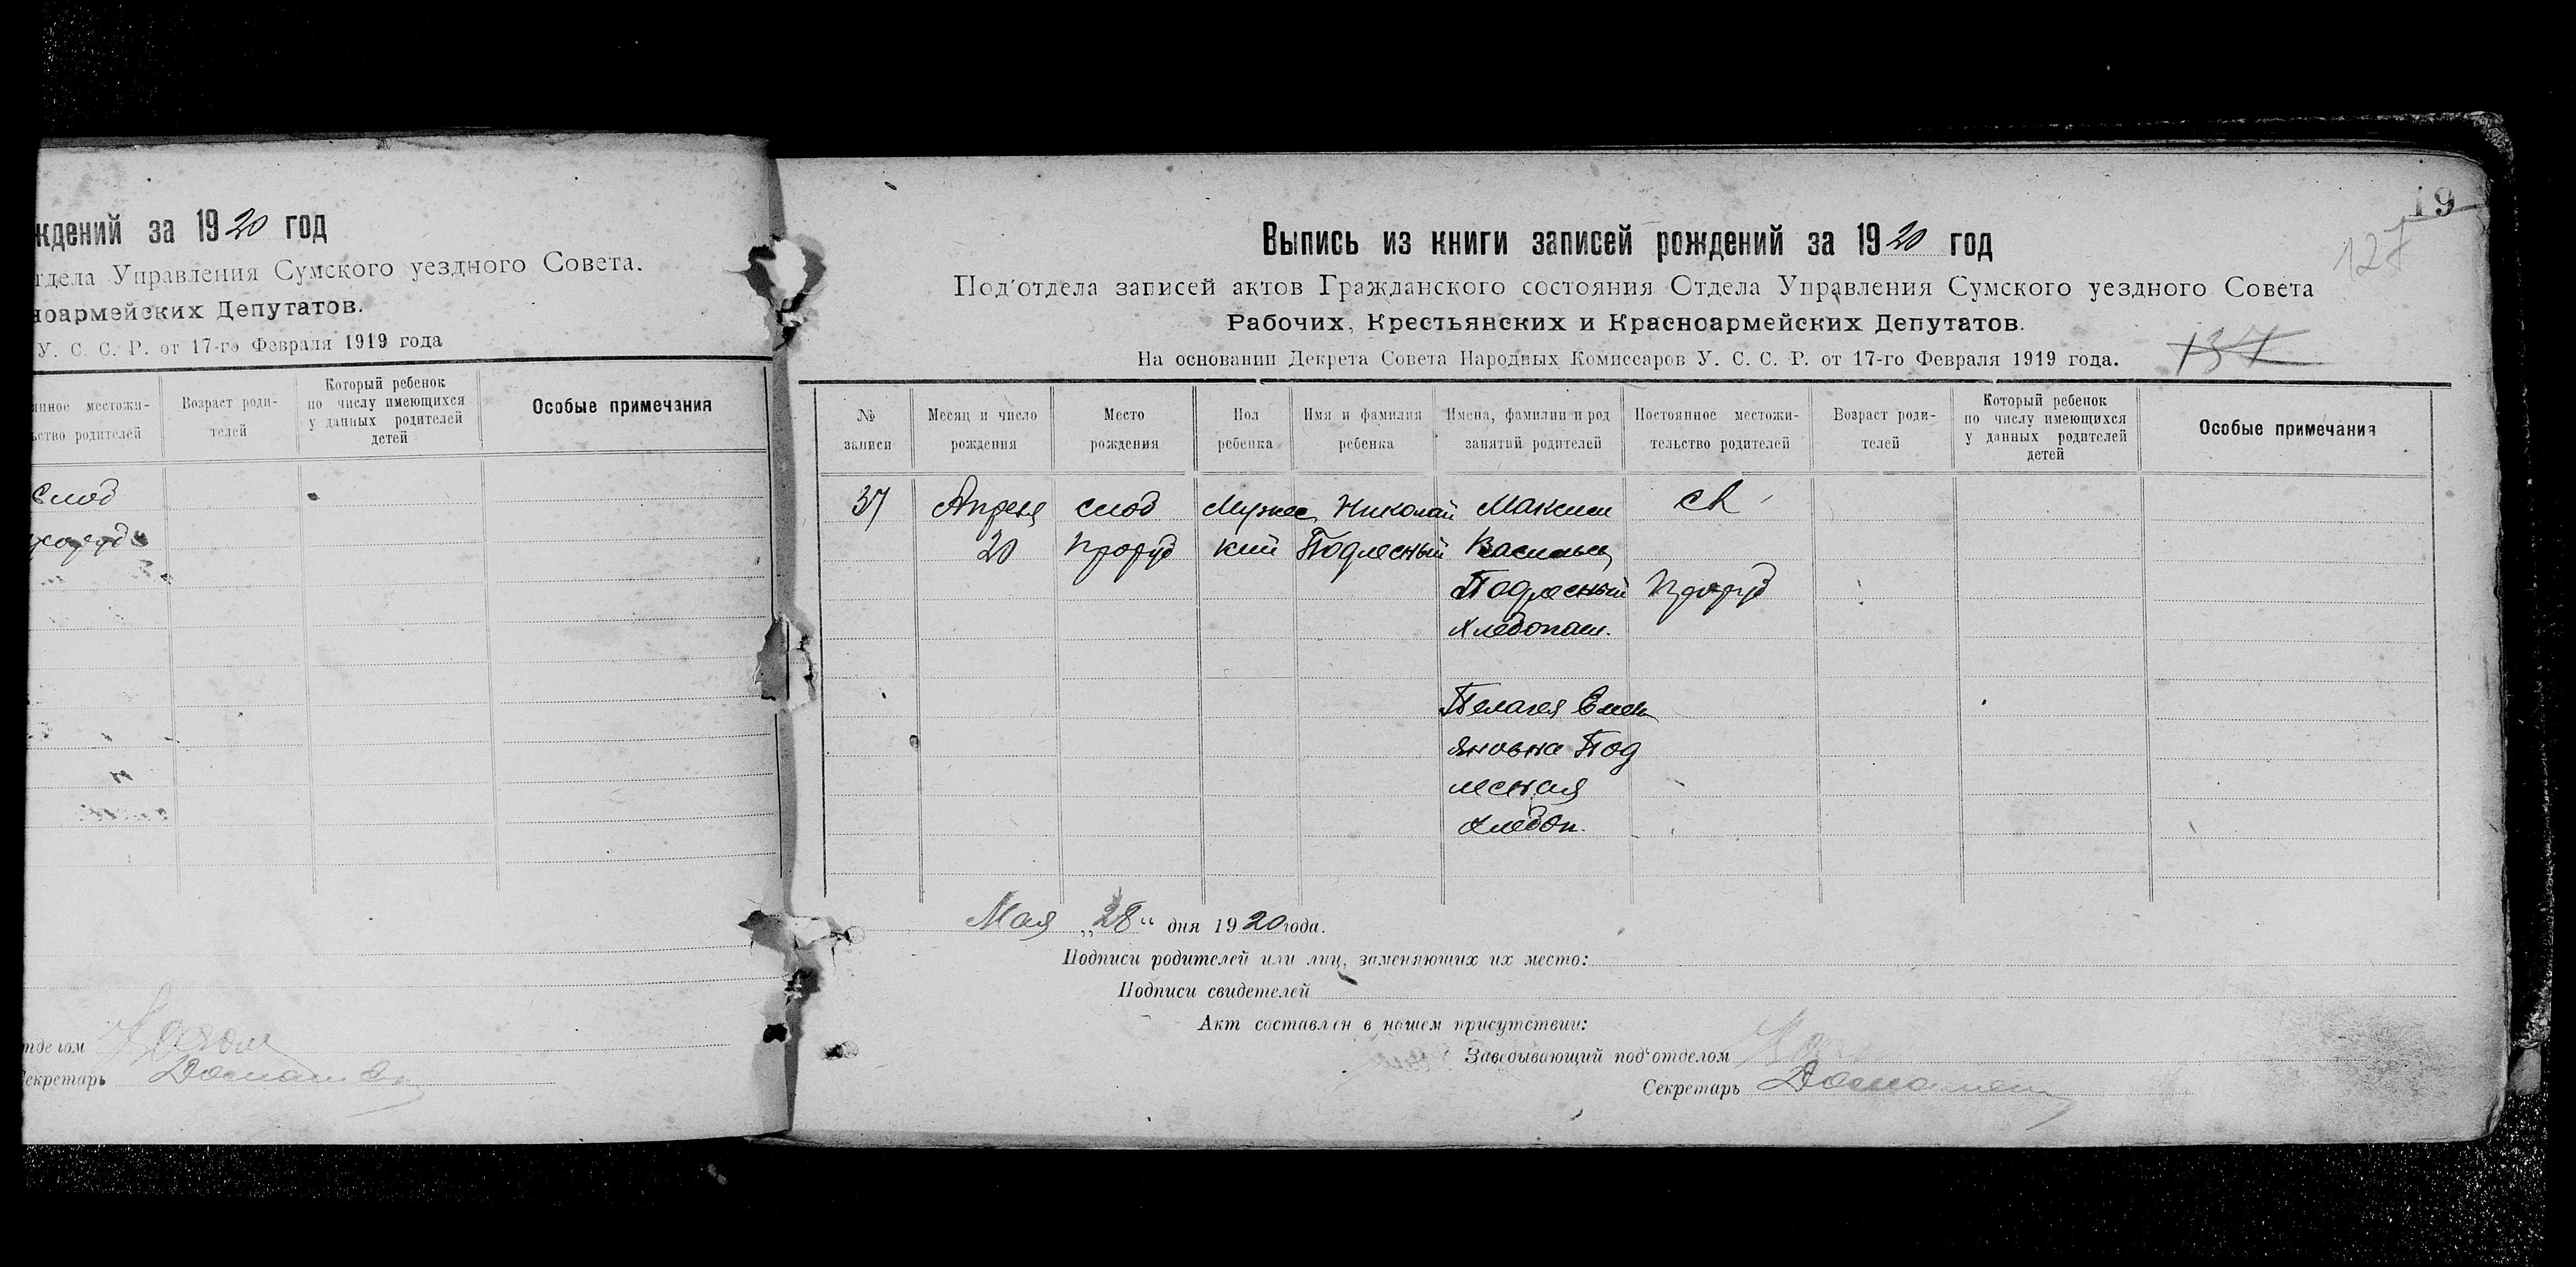 ждений за 1920 год
тдела Управления Сумского уездного Совета.
ноармейских Депутатов.
У. С. С. Р. от 17-го Февраля 1919 года
янное местожи-
ьство родителей
Возраст роди-
телей
Который ребенок
по числу имеющихся
у данных родителей
детей
Особые примечания
Слод
тделом
Секретарь
19
127
137
Выпись из книги записей рождений за 1920 год
Под'отдела записей актов Гражданского состояния Отдела Управления Сумского уездного Совета
Рабочих, Крестьянских и Красноармейских Депутатов.
На основании Декрета Совета Народных Комиссаров У. С. С. Р. от 17-го Февраля 1919 года.
№
записи
Месяц и число
рождения
Место
рождения
Пол
ребенка
Имя и фамилия
ребенка
Имена, фамилии и род
занятий родителей
Постоянное местожи-
тельство родителей
Возраст роди-
телей
Который ребенок
по числу имеющихся
у данных родителей
детей
Особые примечания
37 Апреля слод Мужес Николай Максим
20 Проруб кий Подлесный Васильев
Подлесный Проруб
Хлебопаш.
Пелагея Емель
яновна Под
лесная
хлебоп.
Мая „28“ дня 1920 года.
Подписи родителей или лиц, заменяющих их место:
Подписи свидетелей
Акт составлен в нашем присутствии:
Заведывающий под'отделом
Секретарь